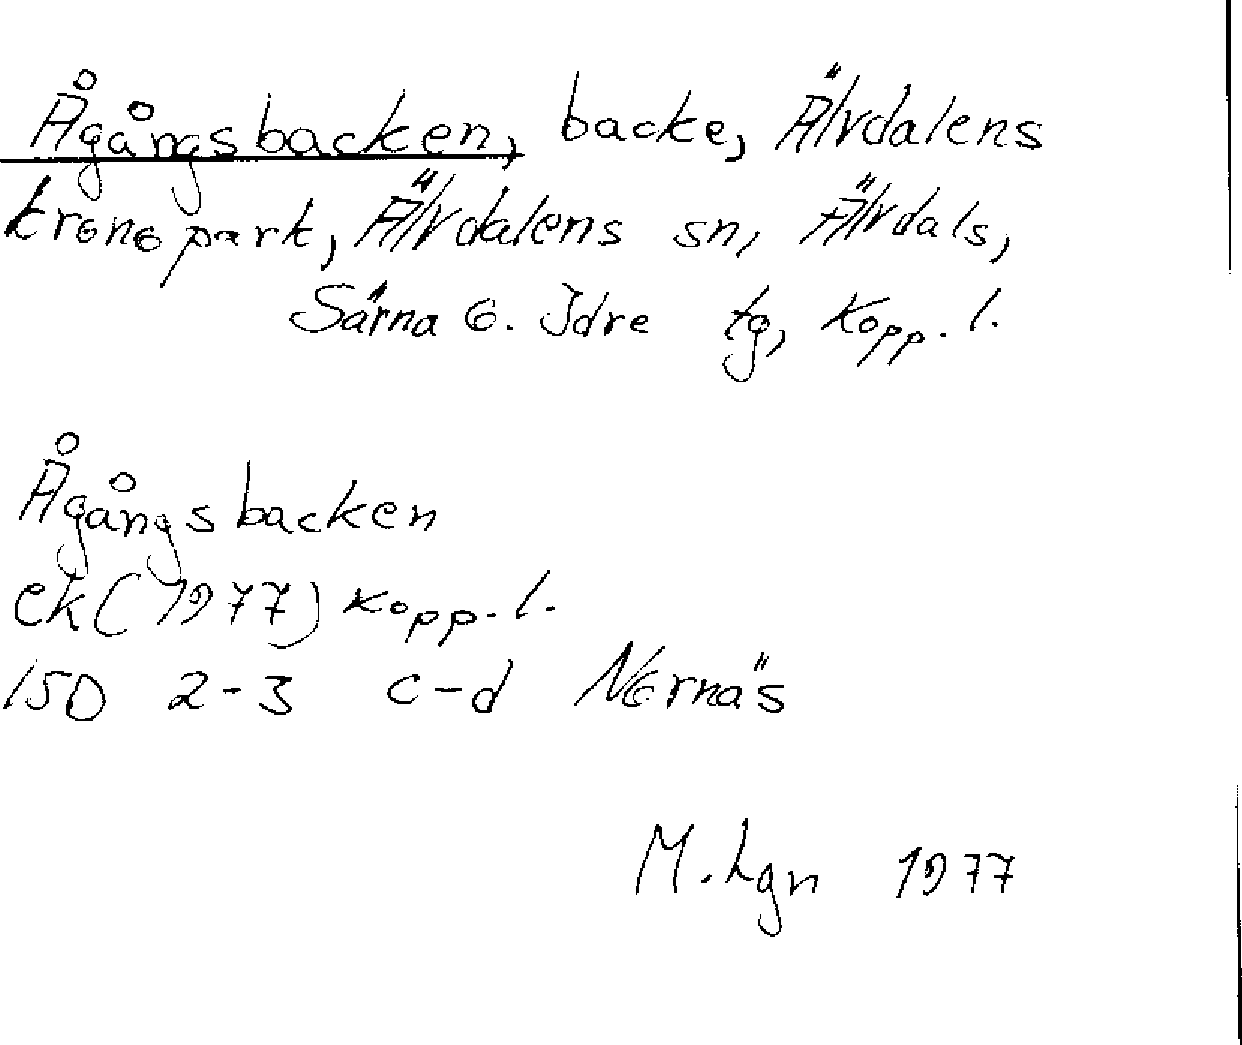 Ågångsbacken, backe, Älvdalens
kronopark, Älvdalens sn, Älvdals,
Särna o. Idre tg, Kopp. l.
Ågångsbacken
ek (1977) Kopp. l.
15D 2-3 c-d Nornäs
M. Lgn 1977